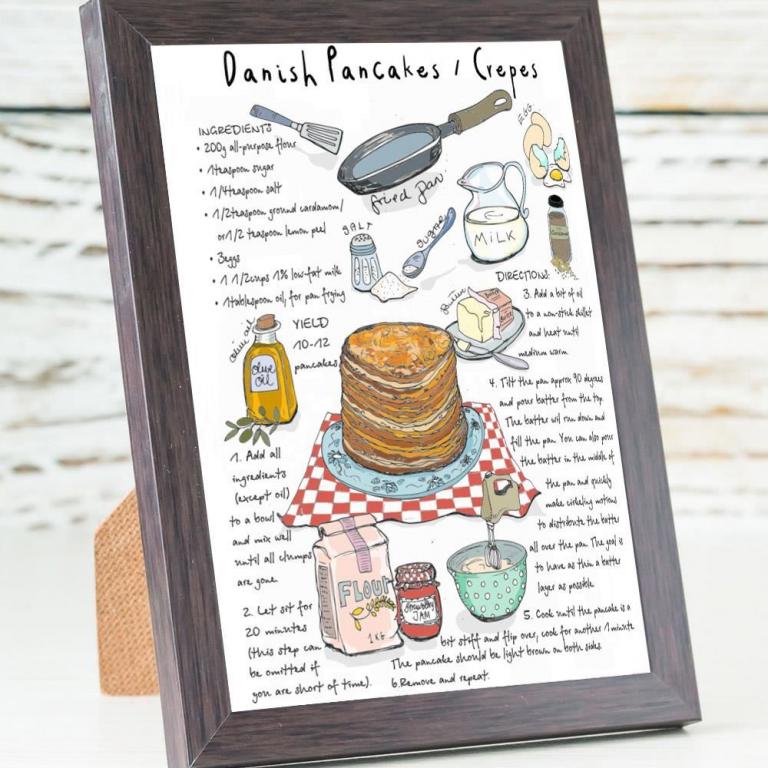 Danish Pancakes / Crepes
INGREDIENTS
• 200g all-purpose flour
• 1teaspoon sugar
• 1/4teaspoon salt
• 1/2teaspoon ground cardamom/
or 1/2 teaspoon lemon peel
• 3eggs
• 1 1/2cups 1% low-fat milk
• 1tablespoon oil, for pan frying
fried pan.
EGG
SALT
SUGAR
MILK
YIELD
10-12
pancakes
olive oil
Olive
oil
1. Add all
ingredients
(except oil)
to a bowl
and mix well
until all clumps
are gone.
2. Let sit for
20 minutes
(this step can
be omitted if
you are short of time).
FLOUR
1KG
Strawberry
JAM
DIRECTIONS:
3. Add a bit of oil
to a non-stick skillet
and heat until
medium warm.
4. Tilt the pan approx 90 degrees
and pour batter from the top.
The batter wil run down and
fill the pan. You can also pour
the batter in the middle of
the pan and quickly
make cirkeling motions
to distribute the batter
all over the pan. The goal is
to have as thin a batter
layer as possible.
5. Cook until the pancake is a
bit stiff and flip over, cook for another 1 minute
The pancake should be light brown on both sides.
6.Remove and repeat.